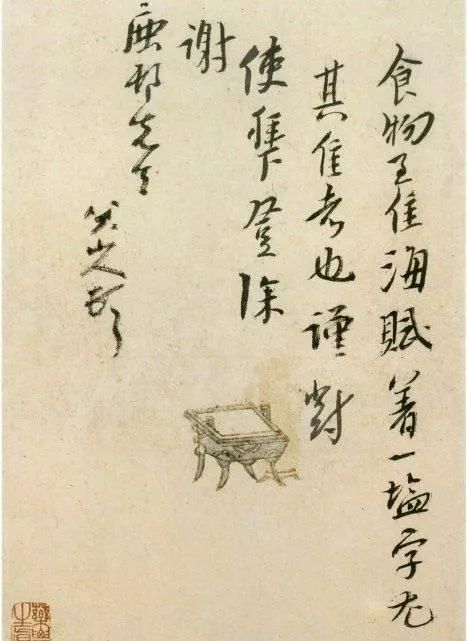 食物至佳海賦着一塩字尤
其佳者也謹對
使拜登
謝
鹿邨先生
八大山人